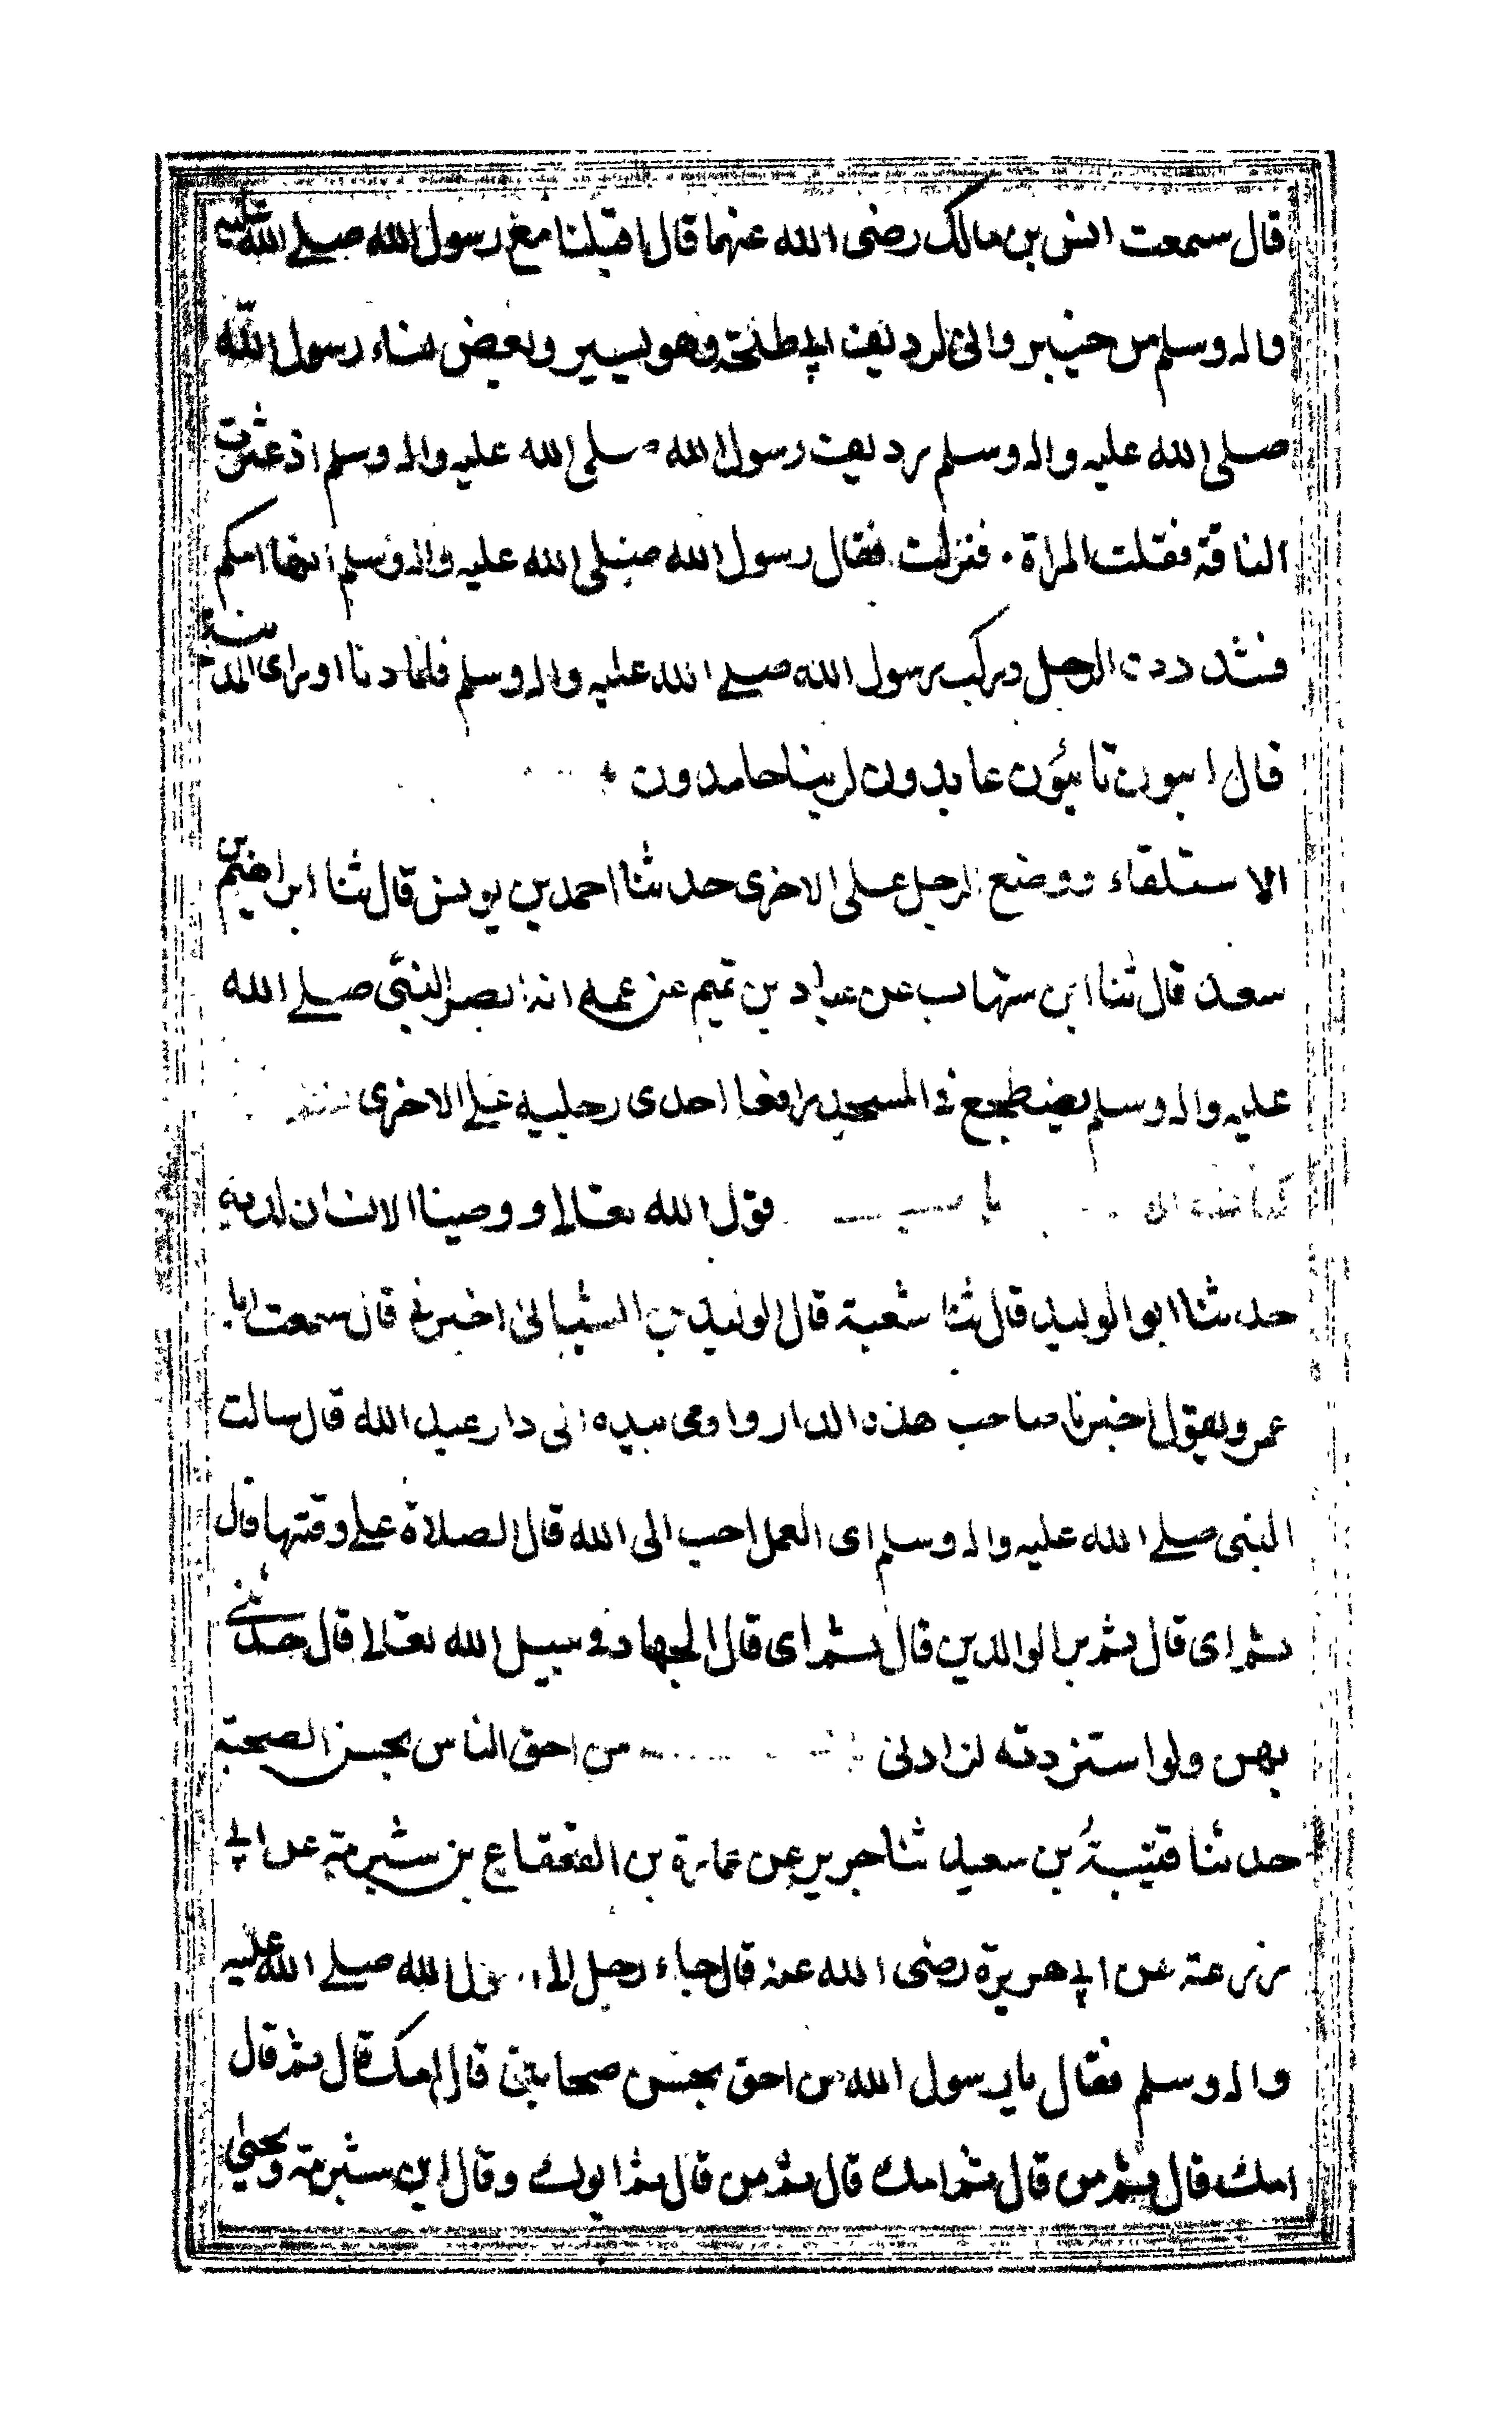 قال سمعت انس بن مالك رضى الله عنهما قال اقبلنا مع رسول الله صلے الله عليه
واله وسلم من خيبر وانى لرديف ابى طلحة وهو يسير وبعض نساء رسول الله
صلى الله عليه واله وسلم رديف رسول الله صلى الله عليه واله وسلم اذ عثرت
الناقة فقلت المراة فنزلت فقال رسول الله صلى الله عليه واله وسلم انها امكم
فشددت الرحل وركب رسول الله صلے الله عليه واله وسلم فلما دنا او راى المدينة
قال ايبون تائبون عابدون لربنا حامدون
الاستلقاء ووضع الرجل على الاخرى حدثنا احمد بن يونس قال ثنا ابراهيم بن
سعد قال ثنا ابن شهاب عن عباد بن تميم عن عمه انه ابصر النبى صلے الله
عليه واله وسلم يضطجع فى المسجد رافعا احدى رجليه على الاخرى
باب قول الله تعالى ووصينا الانسان لديه
حدثنا ابو الوليد قال ثنا شعبة قال الوليد بن الشيبانى اخبرنى قال سمعت ابا
عمرو يقول اخبرنا صاحب هذه الدار واومى بيده الى دار عبد الله قال سالت
النبى صلے الله عليه واله وسلم اى العمل احب الى الله قال الصلاة على وقتها قال
ثم اى قال ثم بر الوالدين قال ثم اى قال الجهاد فى سبيل الله تعالى قال حدثنى
بهن ولو استزدته لزادنى من احق الناس بحسن الصحبة
حدثنا قتيبة بن سعيد ثنا جرير عن عمارة بن القعقاع بن شبرمة عن ابى
زرعة عن ابى هريرة رضى الله عنه قال جاء رجل الى رسول الله صلے الله عليه
واله وسلم فقال يا رسول الله من احق بحسن صحابتى قال امك قال ثم قال
امك قال ثم من قال ثم امك قال ثم من قال ثم ابوك وقال ابن شبرمة ويحيى